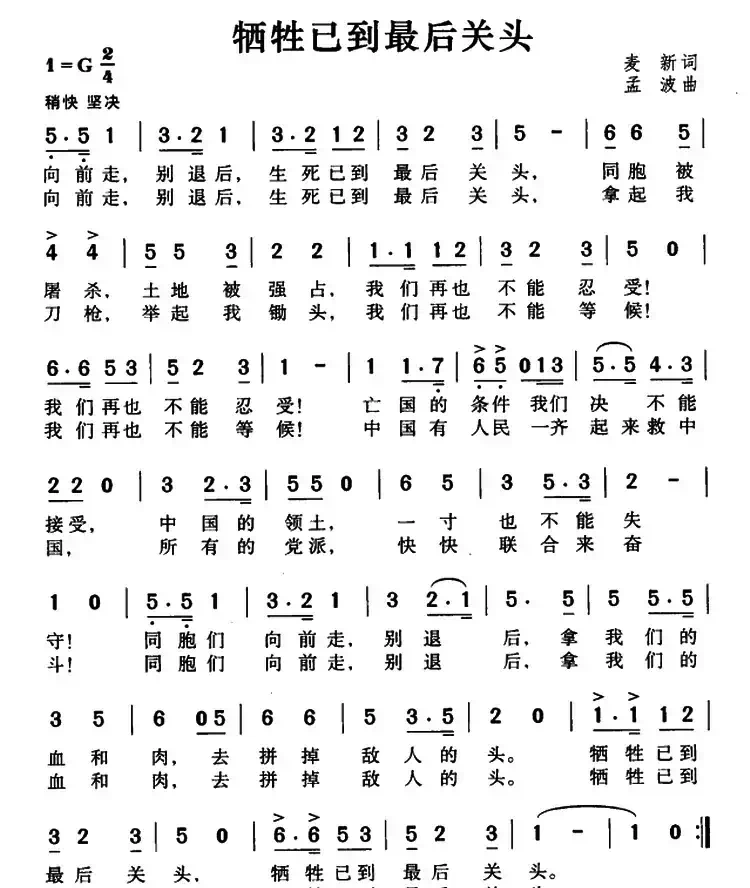 牺牲已到最后关头
1=G 2/4
麦 新词
孟 波曲
稍快 坚决
5·5 1 | 3·2 1 | 3·2 12 | 3 2 3 | 5 - | 6 6 5 |
向前走, 别退后, 生死已到 最后 关 头, 同胞 被
向前走, 别退后, 生死已到 最后 关 头, 拿起 我
4 4 | 5 5 3 | 2 2 | 1·1 12 | 3 2 3 | 5 0 |
屠 杀, 土 地 被 强 占, 我 们 再 也 不 能 忍 受!
刀 枪, 举 起 我 锄 头, 我 们 再 也 不 能 等 候!
6·6 53 | 5 2 3 | 1 - | 1 1·7 | 6 5 013 | 5·5 4·3 |
我们再也 不能 忍 受! 亡 国的 条件 我们 决 不能
我们再也 不能 等 候! 中 国有 人民 一齐 起来救中
22 0 | 3 2·3 | 55 0 | 6 5 | 3 5·3 | 2 - |
接受, 中 国 的 领土, 一 寸 也 不 能 失
国, 所 有 的 党派, 快 快 联 合 来 奋
1 0 | 5·5 1 | 3·2 1 | 3 2·1 | 5· 5 | 5 5·5 |
守! 同胞们 向前走, 别 退 后, 拿 我 们 的
斗! 同胞们 向前走, 别 退 后, 拿 我 们 的
3 5 | 6 05 | 6 6 | 5 3·5 | 2 0 | 1·1 12 |
血 和 肉, 去 拼 掉 敌 人 的 头。 牺 牲 已 到
血 和 肉, 去 拼 掉 敌 人 的 头。 牺 牲 已 到
3 2 3 | 5 0 | 6·6 53 | 5 2 3 | 1 - | 1 0 :||
最 后 关 头, 牺 牲 已 到 最 后 关 头。